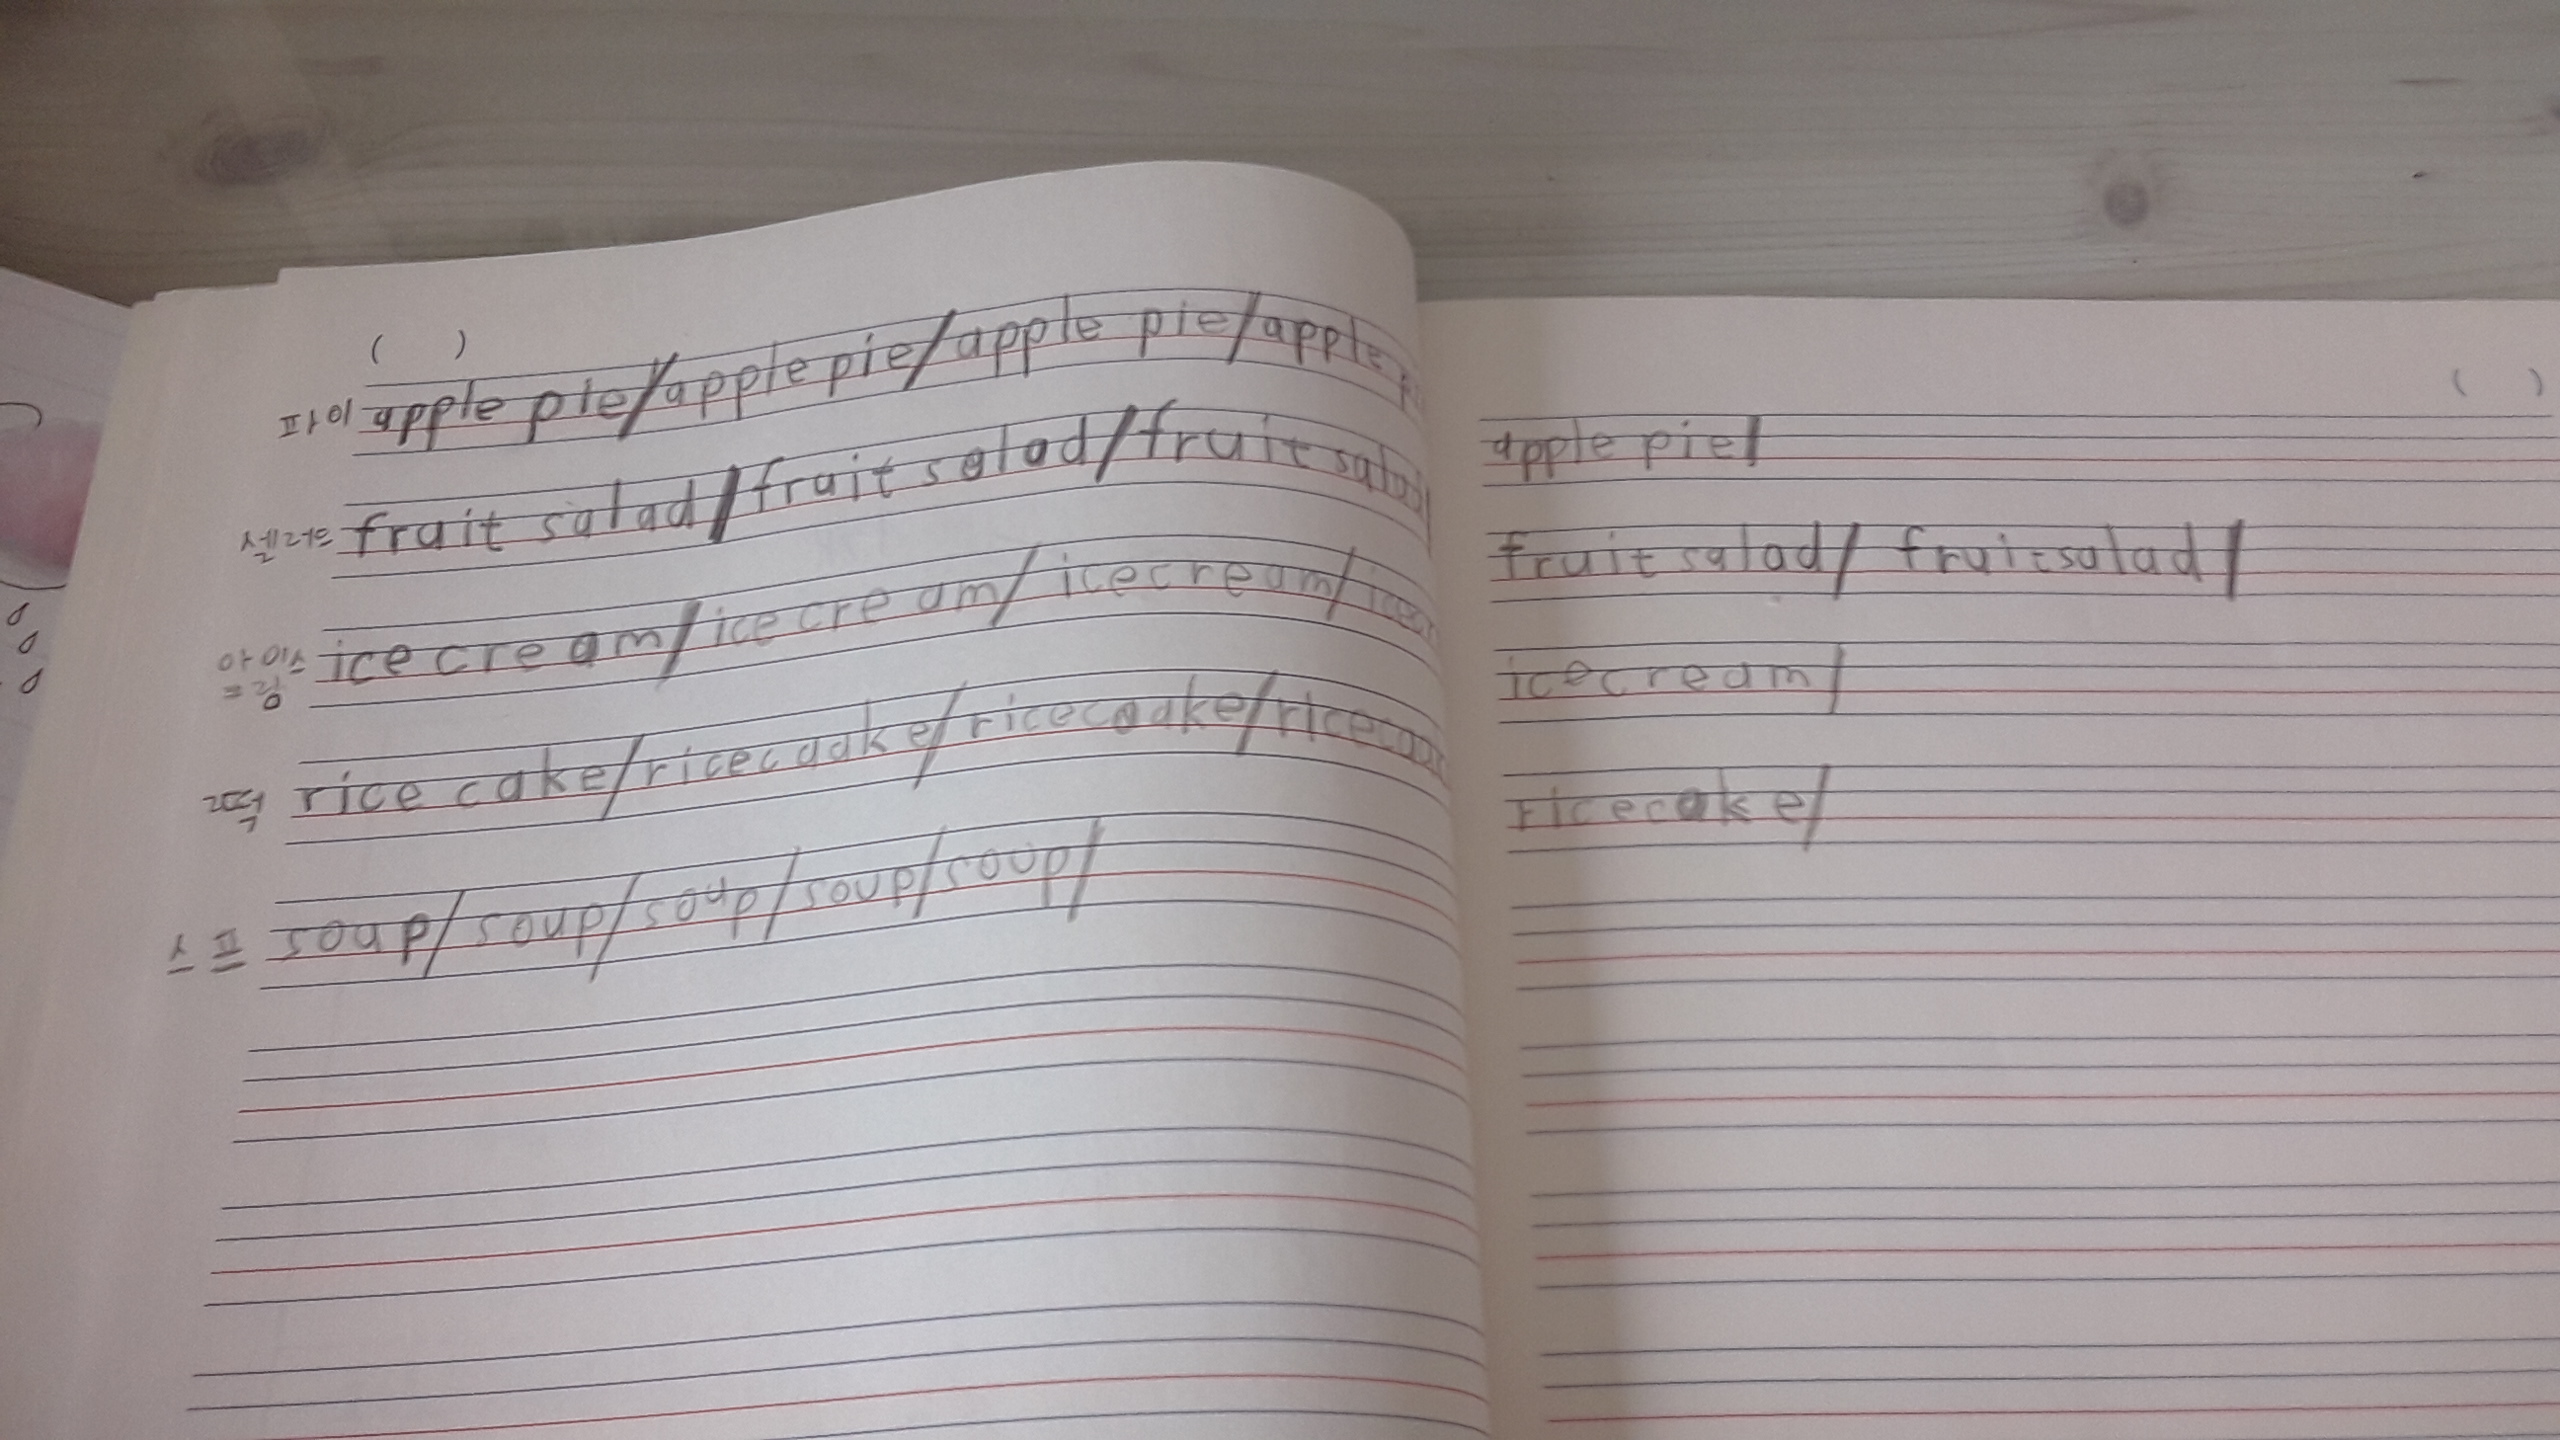 ( )
파이 apple pie/apple pie/apple pie/apple
세러드 frait salad/frait salad/fruit salad/
아이스크림 ice cream/ice cream/icecream/icecr
떡 rice cake/ricecaake/ricecaake/riceca
스프 soup/soup/soup/soup/soup/
( )
apple pie/
fruit salad/ fruit salad/
icecream/
ricecake/